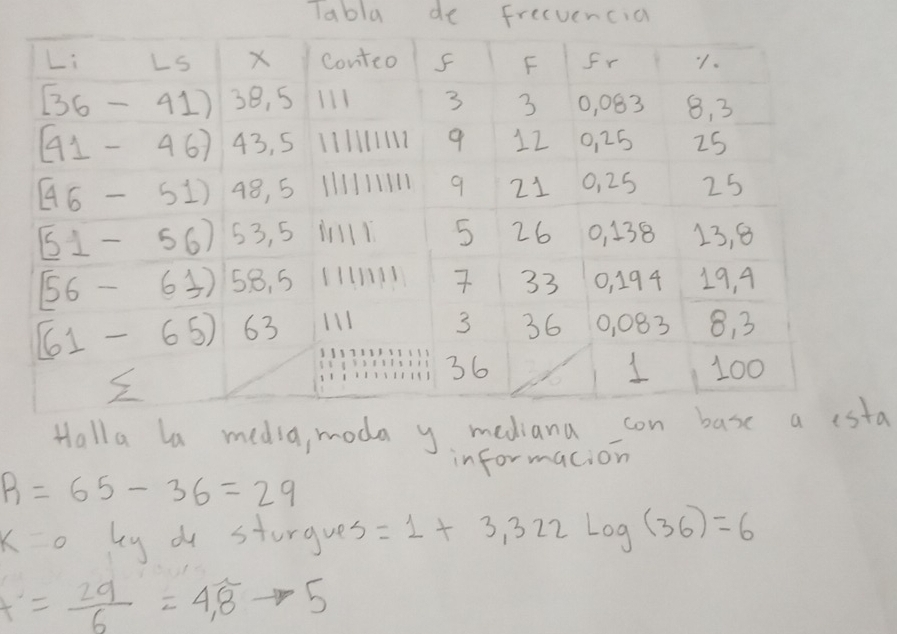 Tabla de frecuencia
Li Ls X Conteo f F fr %
[36 - 41) 38,5 III 3 3 0,083 8,3
[41 - 46) 43,5 IIIIIIIII 9 12 0,25 25
[46 - 51) 48,5 IIIIIIIII 9 21 0,25 25
[51 - 56) 53,5 IIIII 5 26 0,138 13,8
[56 - 61) 58,5 IIIIIII 7 33 0,194 19,4
[61 - 65) 63 III 3 36 0,083 8,3
Σ 36 1 100
Halla la media, moda y mediana con base a esta
información
R = 65 - 36 = 29
K = o ley de sturgues = 1 + 3,322 Log (36) = 6
= 29/6 = 4,8 → 5